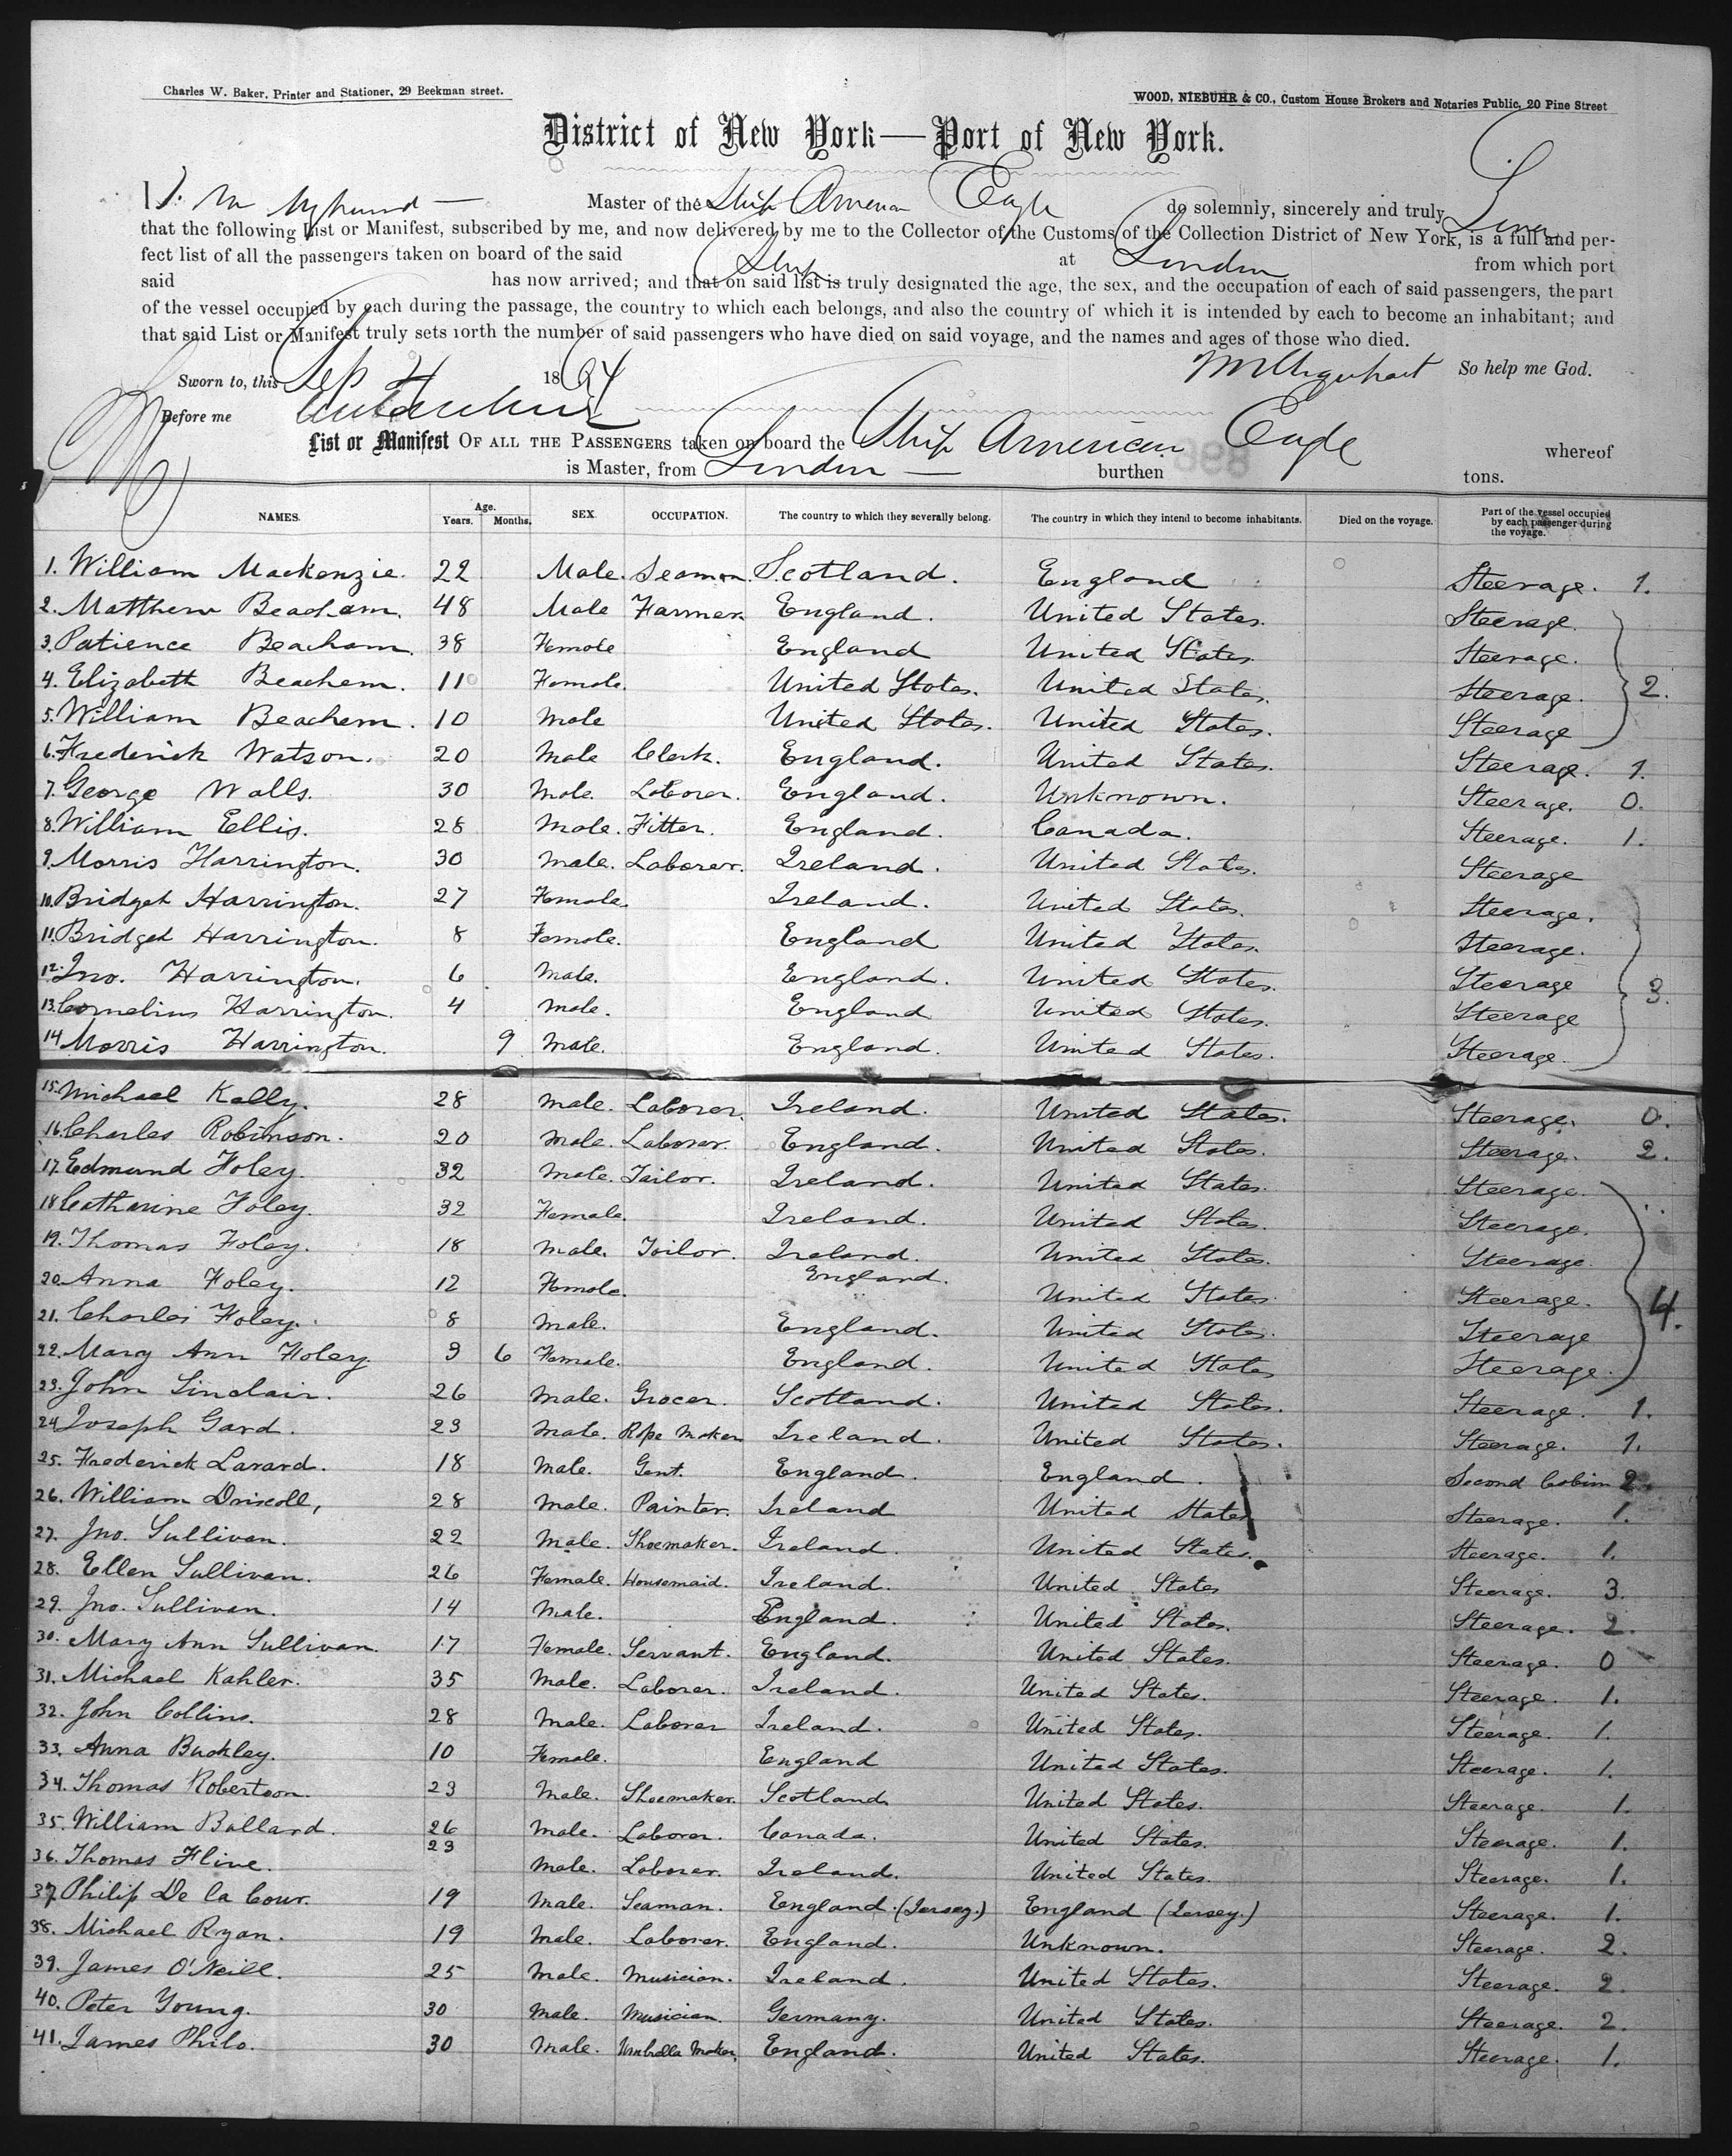 Charles W. Baker, Printer and Stationer, 29 Beekman street.
WOOD, NIEBUHR & CO., Custom House Brokers and Notaries Public, 20 Pine Street
District of New York—Port of New York.
I, Master of the Ship American Eagle do solemnly, sincerely and truly
that the following List or Manifest, subscribed by me, and now delivered by me to the Collector of the Customs of the Collection District of New York, is a full and per-
fect list of all the passengers taken on board of the said Ship at London from which port
said has now arrived; and that on said list is truly designated the age, the sex, and the occupation of each of said passengers, the part
of the vessel occupied by each during the passage, the country to which each belongs, and also the country of which it is intended by each to become an inhabitant; and
that said List or Manifest truly sets forth the number of said passengers who have died on said voyage, and the names and ages of those who died.
Sworn to, this Sep 4 1864 So help me God.
Before me
List or Manifest OF ALL THE PASSENGERS taken on board the Ship American Eagle whereof
is Master, from London — burthen tons.
NAMES. Age. Years. Months. SEX. OCCUPATION. The country to which they severally belong. The country in which they intend to become inhabitants. Died on the voyage. Part of the vessel occupied by each passenger during the voyage.
1. William Mackenzie. 22 Male. Seaman. Scotland. England Steerage. 1.
2. Matthew Beacham. 48 Male Farmer. England. United States. Steerage.
3. Patience Beacham. 38 Female England United States. Steerage.
4. Elizabeth Beachem. 11 Female. United States. United States. Steerage. 2.
5. William Beachem. 10 Male United States. United States. Steerage
6. Frederick Watson. 20 Male Clerk. England. United States. Steerage. 1.
7. George Walls. 30 Male. Laborer. England. Unknown. Steerage. 0.
8. William Ellis. 28 Male. Fitter. England. Canada. Steerage. 1.
9. Morris Harrington. 30 Male. Laborer. Ireland. United States. Steerage
10. Bridget Harrington. 27 Female. Ireland. United States. Steerage.
11. Bridget Harrington. 8 Female. England United States. Steerage.
12. Jno. Harrington. 6 Male. England. United States. Steerage 3.
13. Cornelius Harrington. 4 Male. England United States. Steerage
14. Morris Harrington. 9 Male. England. United States. Steerage.
15. Michael Kelly. 28 Male. Laborer. Ireland. United States. Steerage. 0.
16. Charles Robinson. 20 Male. Laborer. England. United States. Steerage. 2.
17. Edmund Foley. 32 Male. Tailor. Ireland. United States. Steerage.
18. Catharine Foley. 32 Female. Ireland. United States. Steerage.
19. Thomas Foley. 18 Male. Tailor. Ireland. United States. Steerage.
20. Anna Foley. 12 Female. England. United States. Steerage. 4.
21. Charles Foley. 8 Male. England. United States. Steerage
22. Mary Ann Foley. 3 6 Female. England. United States Steerage.
23. John Sinclair. 26 Male. Grocer. Scotland. United States. Steerage. 1.
24. Joseph Gard. 23 Male. Rope Maker Ireland. United States. Steerage. 1.
25. Frederick Larard. 18 Male. Gent. England. England. Second Cabin 2.
26. William Driscoll, 28 Male. Painter. Ireland United States Steerage. 1.
27. Jno. Sullivan. 22 Male. Shoemaker. Ireland. United States. Steerage. 1.
28. Ellen Sullivan. 26 Female. Housemaid. Ireland. United States Steerage. 3.
29. Jno. Sullivan. 14 Male. England. United States. Steerage. 2.
30. Mary Ann Sullivan. 17 Female. Servant. England. United States. Steerage. 0
31. Michael Kahler. 35 Male. Laborer. Ireland. United States. Steerage. 1.
32. John Collins. 28 Male. Laborer Ireland. United States. Steerage. 1.
33. Anna Buckley. 10 Female. England United States. Steerage. 1.
34. Thomas Robertson. 23 Male. Shoemaker. Scotland. United States. Steerage. 1.
35. William Ballard. 26 Male. Laborer. Canada. United States. Steerage. 1.
36. Thomas Fline. 23 Male. Laborer. Ireland. United States. Steerage. 1.
37. Philip De la Cour. 19 Male. Seaman. England. (Jersey.) England (Jersey.) Steerage. 1.
38. Michael Ryan. 19 Male. Laborer. England. Unknown. Steerage. 2.
39. James O'Neill. 25 Male. Musician. Ireland. United States. Steerage. 2.
40. Peter Young. 30 Male. Musician. Germany. United States. Steerage. 2.
41. James Philo. 30 Male. Umbrella Maker. England. United States. Steerage. 1.